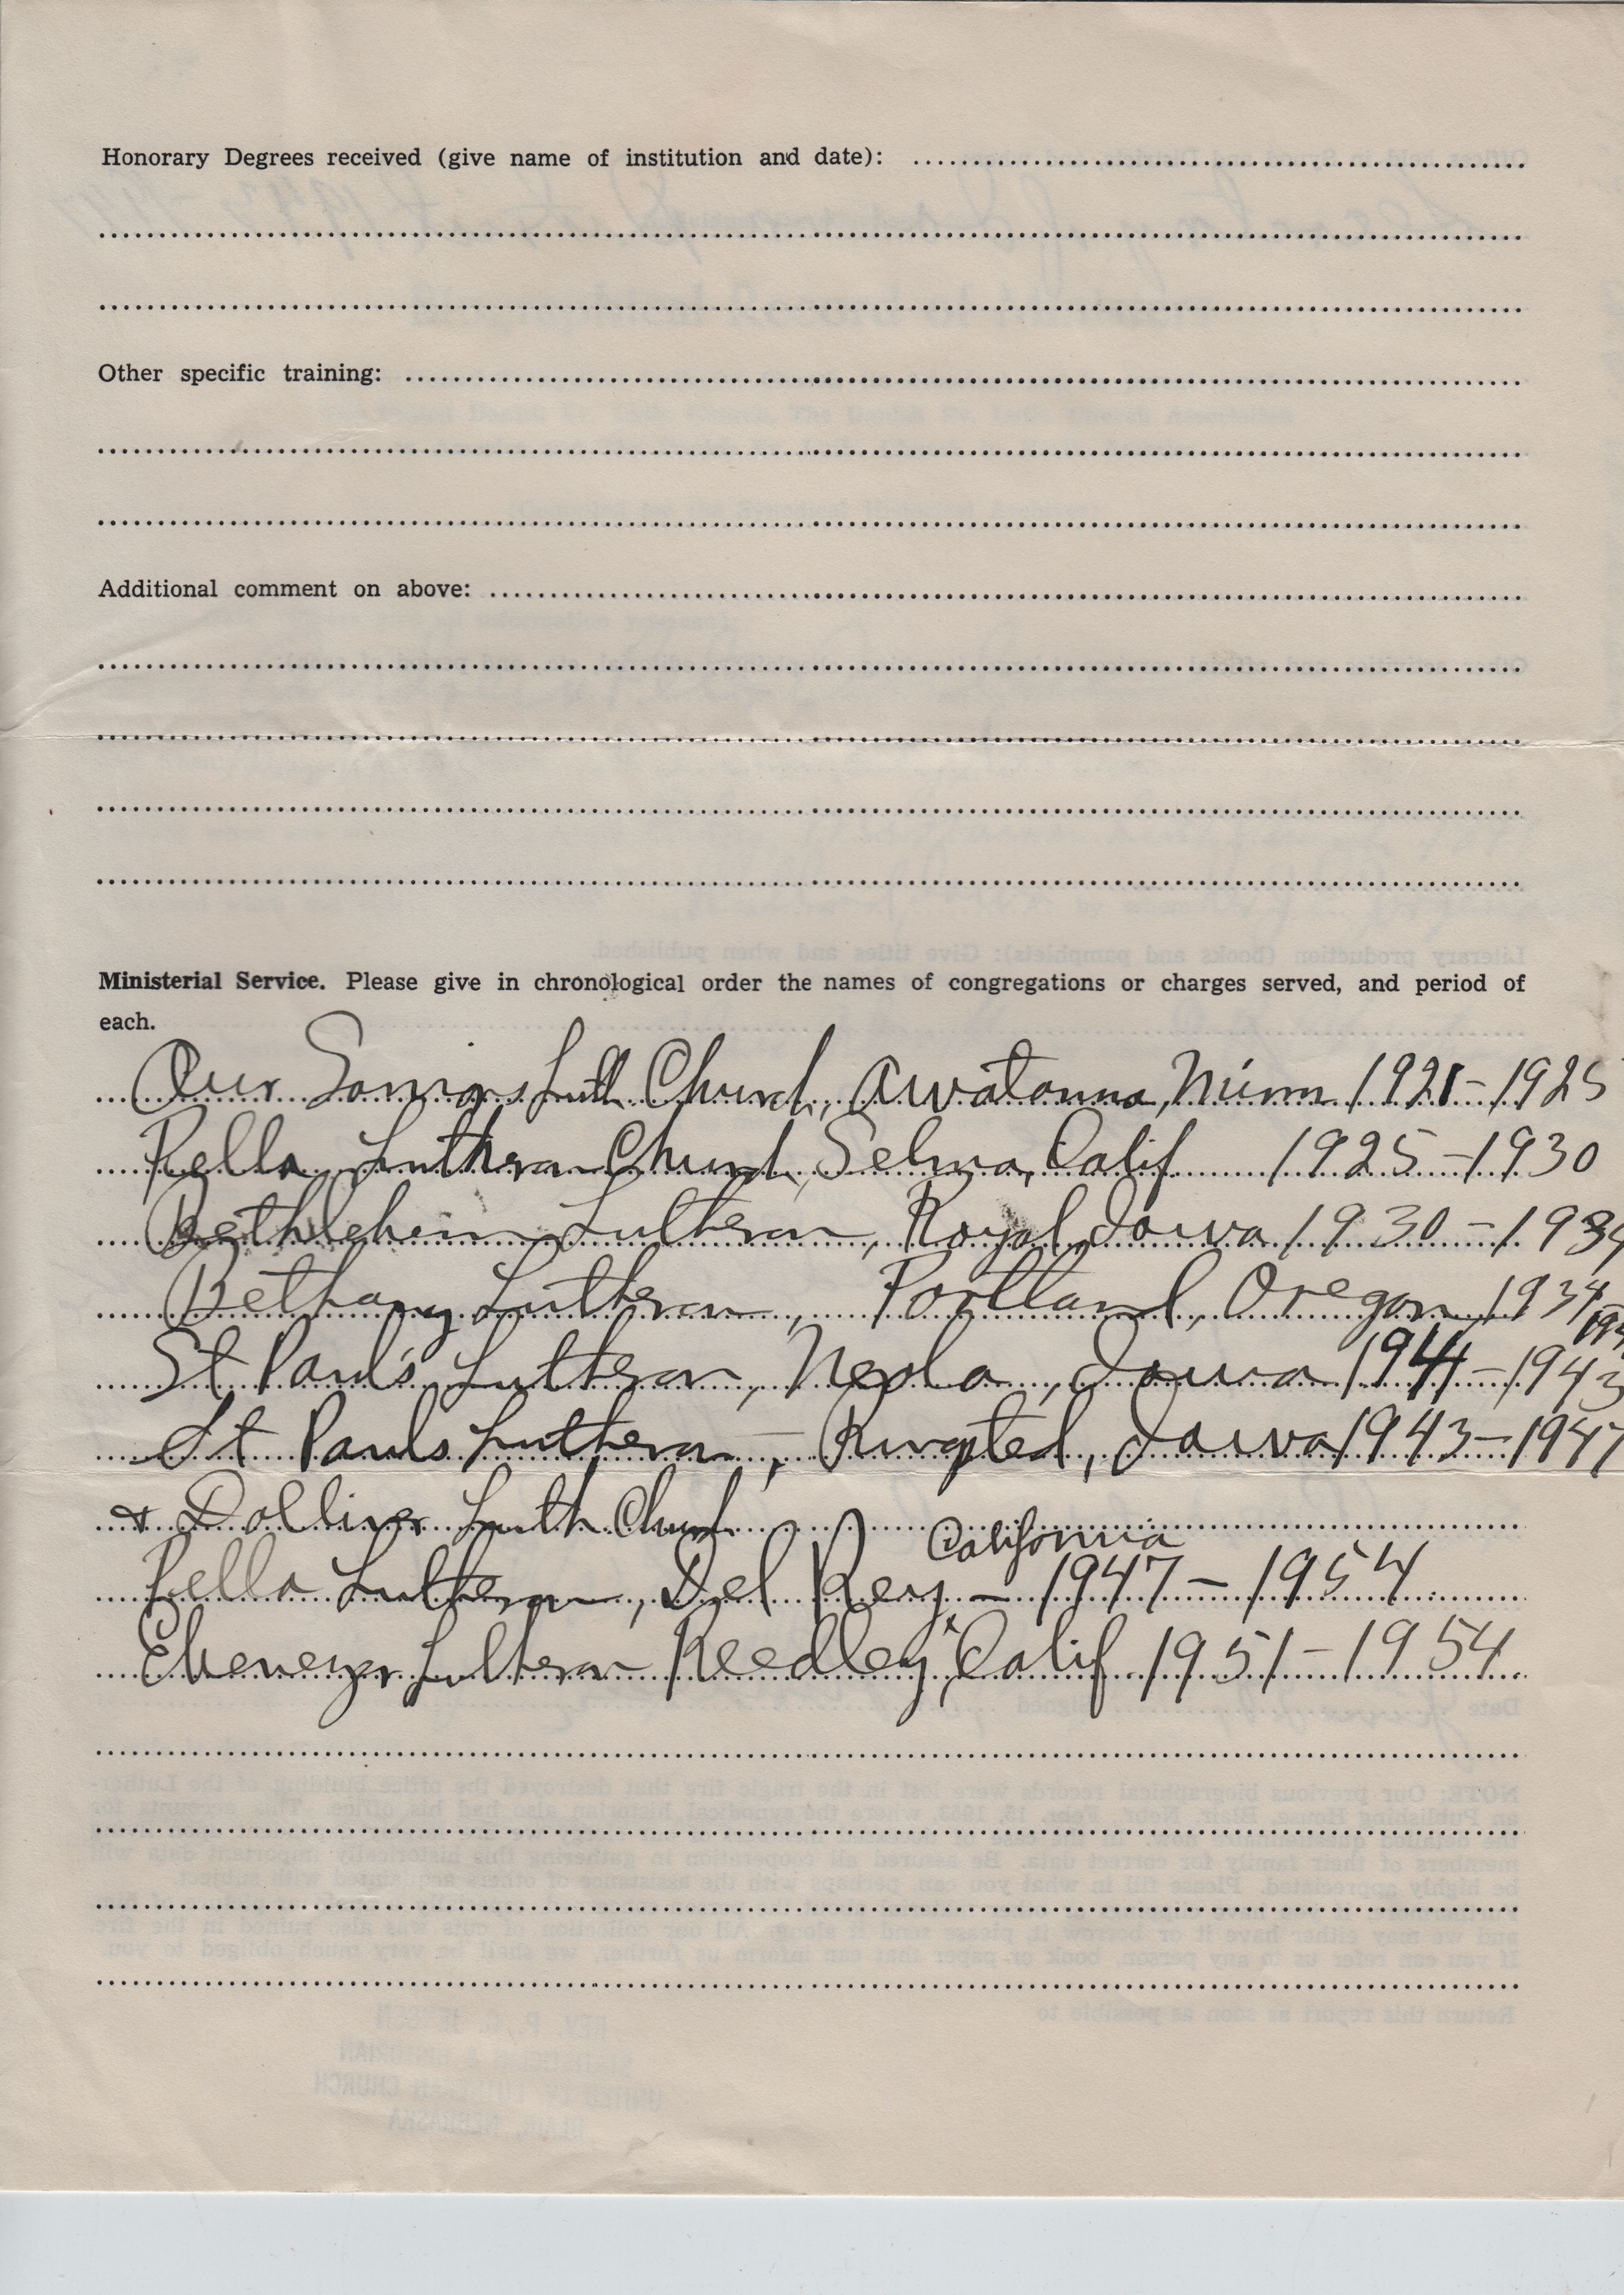 Honorary Degrees received (give name of institution and date):
Other specific training:
Additional comment on above:
Ministerial Service. Please give in chronological order the names of congregations or charges served, and period of
each.
Our Saviors Luth Church, Owatonna, Minn 1921-1925
Pella Lutheran Church, Selma, Calif 1925-1930
Bethlehem Lutheran, Royal, Iowa 1930-1934
Bethany Lutheran, Portland, Oregon, 1934-
St Paul's Lutheran, Neola, Iowa 1941-1943
St Pauls Lutheran -, Ringsted, Iowa 1943-1947
& Dolliver Luth Church
California
Pella Lutheran, Del Rey, - 1947 - 1954
Ebenezer Lutheran Reedley, Calif 1951-1954